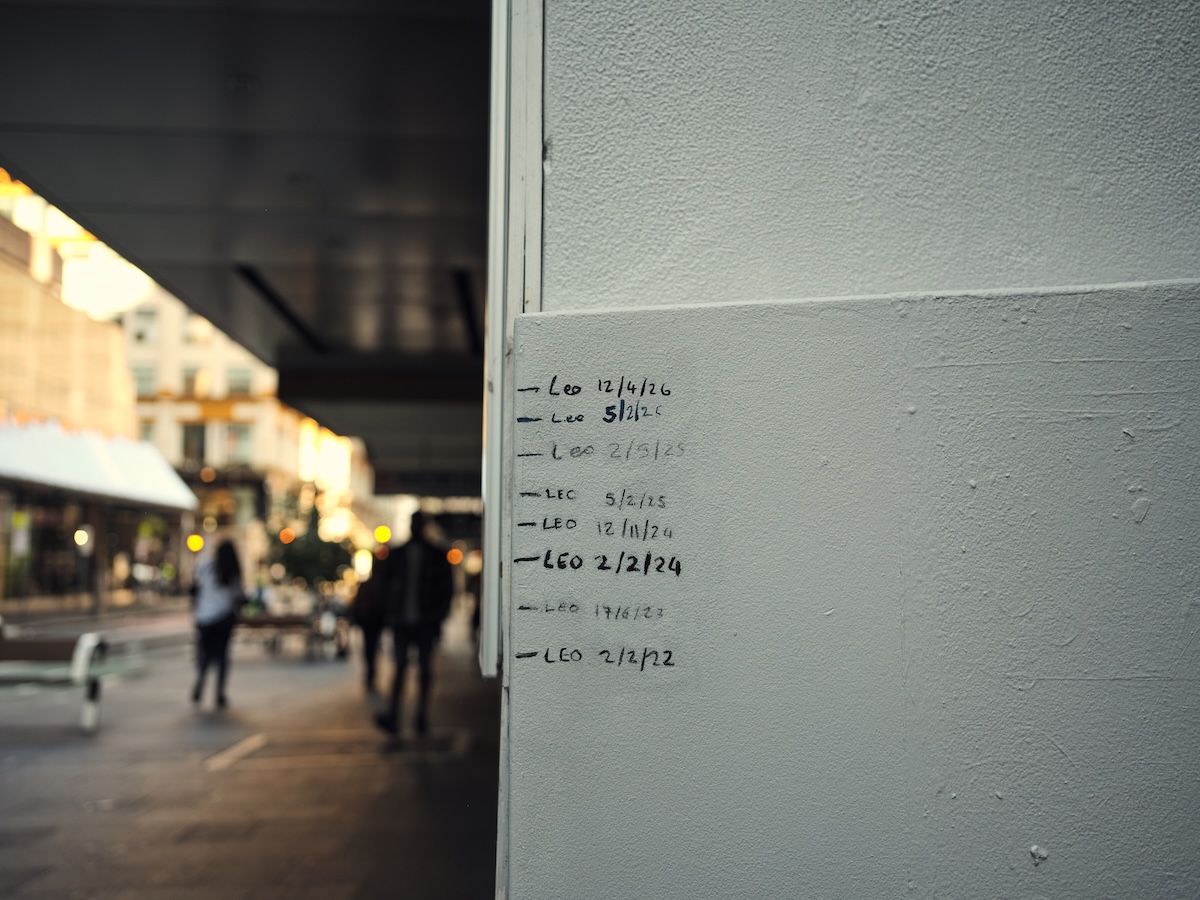 — Leo 12/4/26
— Leo 5/2/26
— Leo 2/9/25
— LEO 5/2/25
— LEO 12/11/24
— LEO 2/2/24
— LEO 17/6/23
— LEO 2/2/22